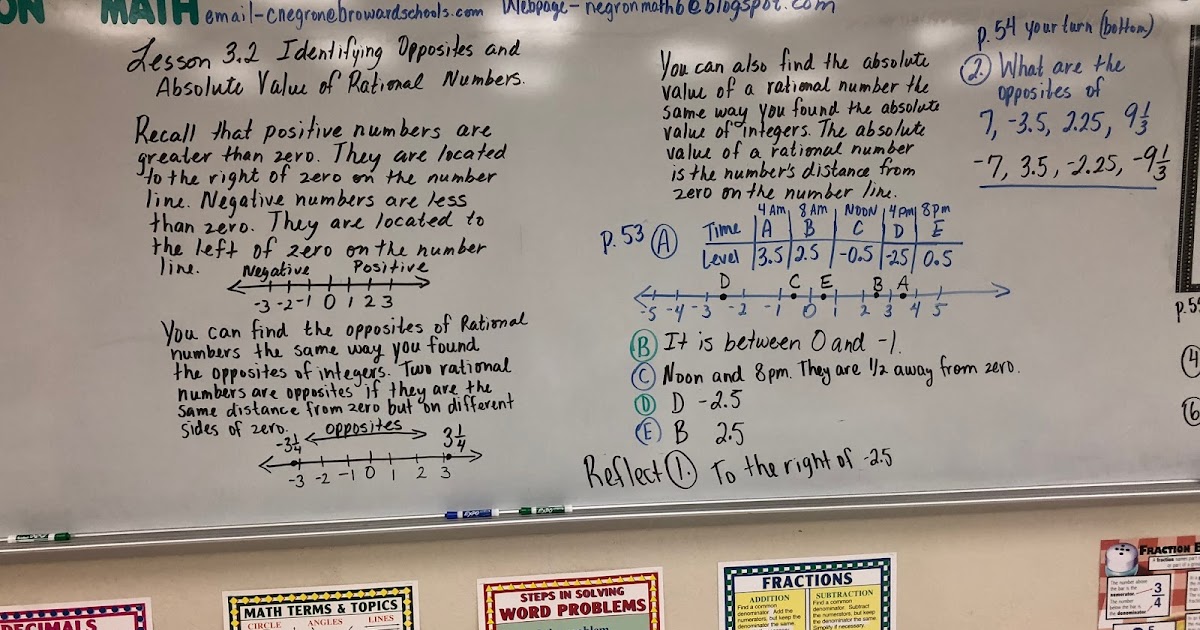 ON MATH email-cnegron@browardschools.com Webpage-negronmath6@blogspot.com
Lesson 3.2 Identifying Opposites and
Absolute Value of Rational Numbers.
Recall that positive numbers are
greater than zero. They are located
to the right of zero on the number
line. Negative numbers are less
than zero. They are located to
the left of zero on the number
line.
Negative Positive
-3 -2 -1 0 1 2 3
You can find the opposites of Rational
numbers the same way you found
the opposites of integers. Two rational
numbers are opposites if they are the
same distance from zero but on different
sides of zero.
opposites
-3 1/4 3 1/4
-3 -2 -1 0 1 2 3
You can also find the absolute
value of a rational number the
same way you found the absolute
value of integers. The absolute
value of a rational number
is the number's distance from
zero on the number line.
4 Am 8 AM NOON 4pm 8pm
p. 53 A Time A B C D E
Level 3.5 2.5 -0.5 -2.5 0.5
D C E B A
-5 -4 -3 -2 -1 0 1 2 3 4 5
B It is between 0 and -1.
C Noon and 8pm. They are 1/2 away from zero.
D D -2.5
E B 2.5
Reflect 1. To the right of -2.5
p. 54 your turn (bottom)
2. What are the
opposites of
7, -3.5, 2.25, 9 1/3
-7, 3.5, -2.25, -9 1/3
4
6
DECIMALS
MATH TERMS & TOPICS
CIRCLE ANGLES LINES
STEPS IN SOLVING
WORD PROBLEMS
FRACTIONS
ADDITION
Find a common
denominator. Add the
numerators, but keep
the denominator the
same.
SUBTRACTION
Find a common
denominator. Subtract
the numerators, but keep
the denominator the same.
Simplify if necessary.
FRACTION
The number above
the
numerator.
The number
below the bar is
the denominator.
3/4